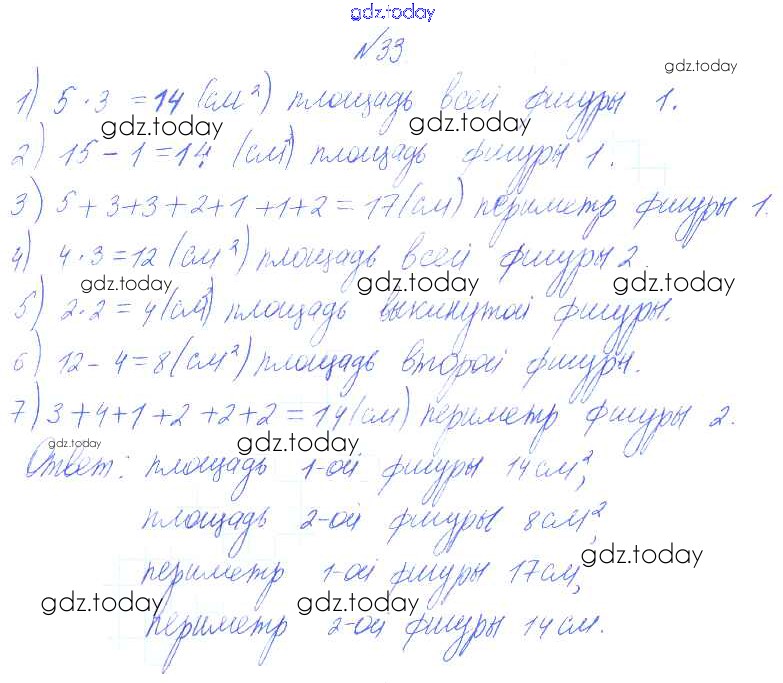 gdz.today
№33
gdz.today
1) 5·3 = 14 (см²) площадь всей фигуры 1.
gdz.today gdz.today
2) 15-1=14 (см²) площадь фигуры 1.
3) 5+3+3+2+1+1+2=17(см) периметр фигуры 1.
4) 4·3=12 (см²) площадь всей фигуры 2
gdz.today gdz.today gdz.today
5) 2·2=4(см²) площадь выкинутой фигуры.
6) 12-4=8(см²) площадь второй фигуры.
7) 3+4+1+2+2+2=14(см) периметр фигуры 2.
gdz.today gdz.today
Ответ: площадь 1-ой фигуры 14см²,
площадь 2-ой фигуры 8см²,
gdz.today
периметр 1-ой фигуры 17см,
gdz.today gdz.today
периметр 2-ой фигуры 14см.